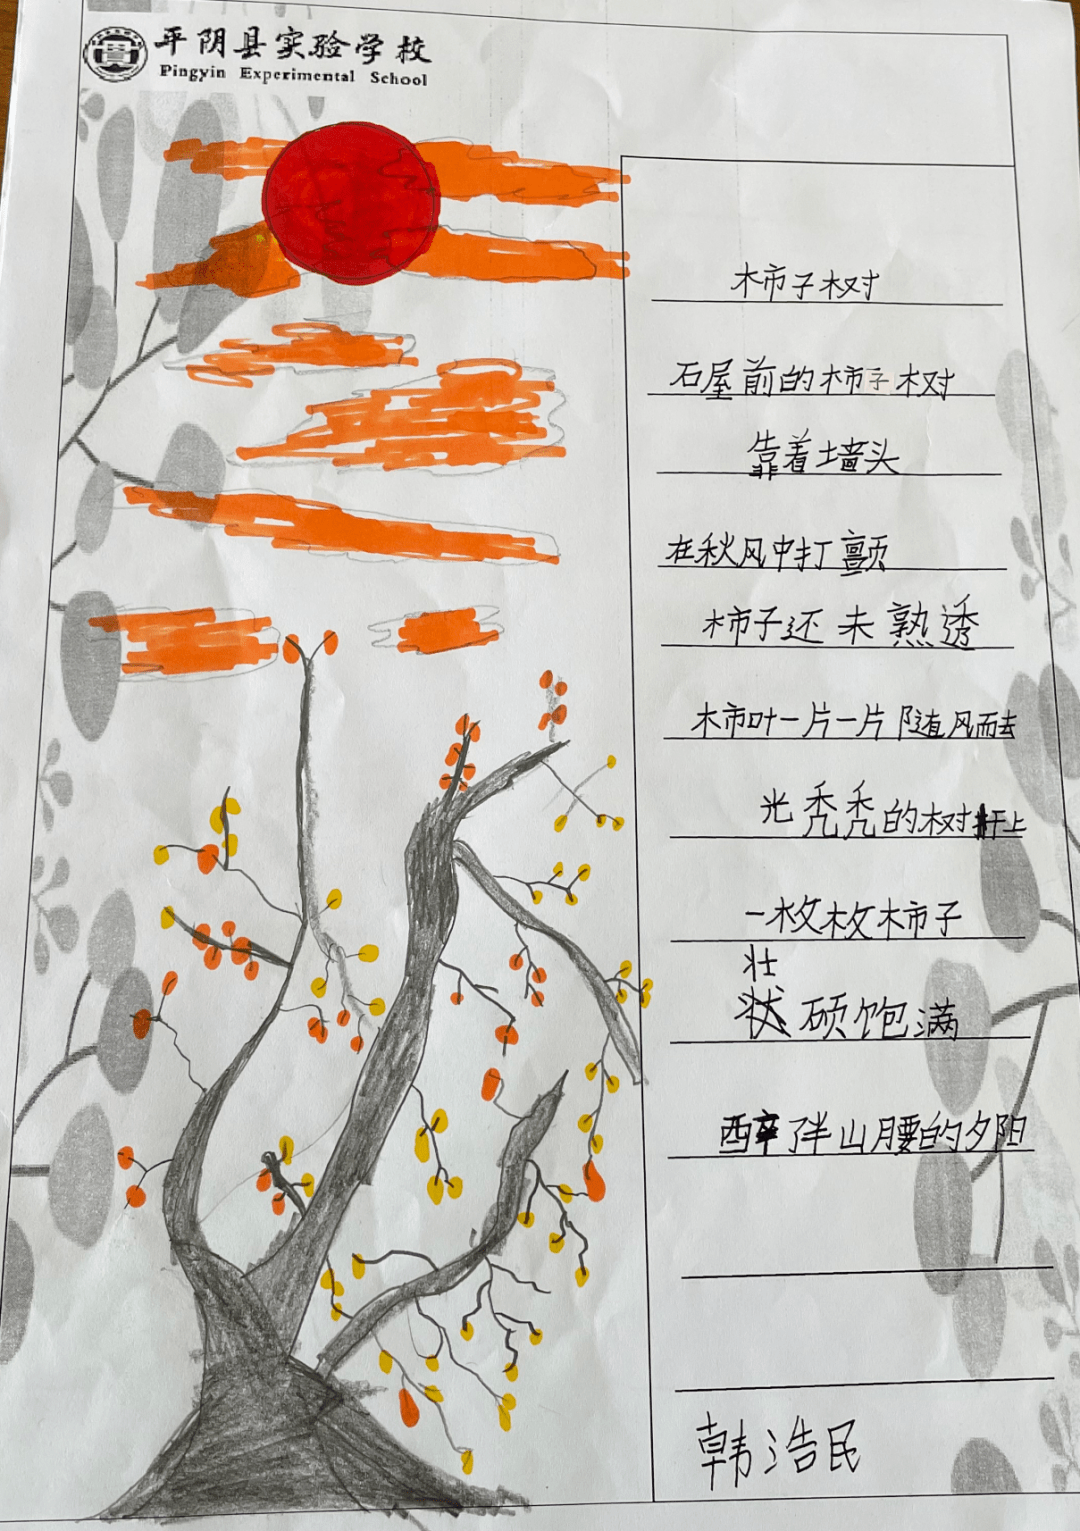 平阴县实验学校
Pingyin Experimental School
柿子树
石屋前的柿子树
靠着墙头
在秋风中打颤
柿子还未熟透
柿叶一片一片随风而去
光秃秃的树干上
一枚枚柿子
壮
状硕饱满
醉了半山腰的夕阳
韩浩民